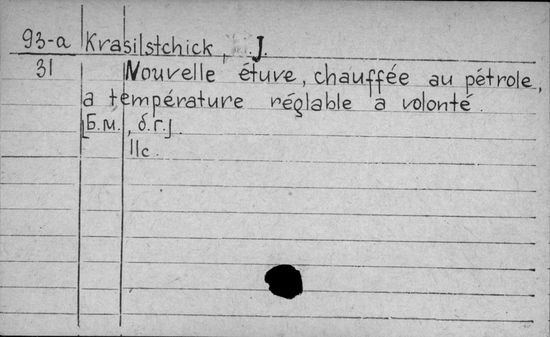 93-a Krasilstchick, J.
31 Nouvelle étuve, chauffée au pétrole,
a température réglable a volonté.
[Б.м., б.г.]
11с.